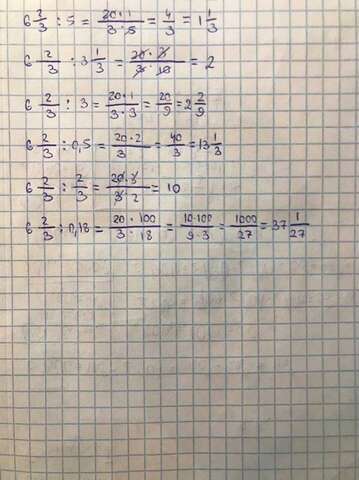 6 2/3 : 5 = 20·1/3·5 = 4/3 = 1 1/3
6 2/3 : 3 1/3 = 20·3/3·10 = 2
6 2/3 : 3 = 20·1/3·3 = 20/9 = 2 2/9
6 2/3 : 0,5 = 20·2/3 = 40/3 = 13 1/3
6 2/3 : 2/3 = 20·3/3·2 = 10
6 2/3 : 0,18 = 20·100/3·18 = 10·100/9·3 = 1000/27 = 37 1/27